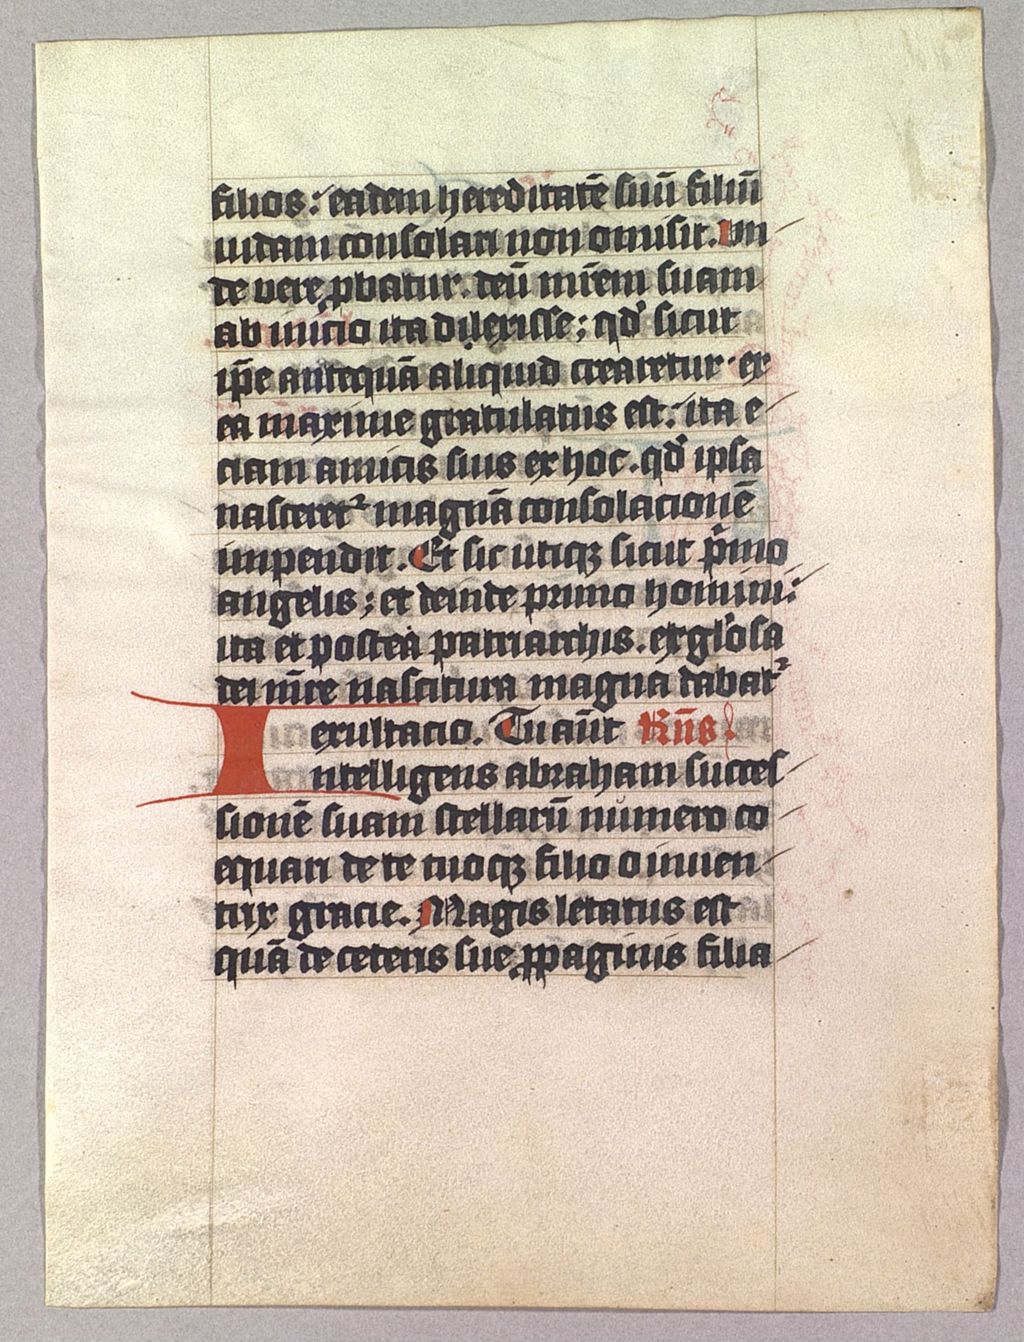 filios: eadem hereditatē suū filiū
uidam consolari non omisit. Vn
de vere ꝓbatur. deū mr̄em suam
ab inicio ita dilexisse; qd̕ sicut
ip̄e anteq̄uā aliquid crearetur ex
ea maxime gratulatus est: ita e
ciam amicis suis ex hoc. qd̕ ipsa
nasceret᷑ magnā consolacionē
impendit. Et sic utiqꝫ sicut p̄imo
angelis; et deinde primo homini:
ita et postea patriarchis. ex gl̕osa
dei mr̄e nascitura magna dabat᷑
exultacio. Tu aūt Rūs
Intelligens abraham succes
sionē suam stellarū numero co
equari de te tuoqꝫ filio o inuen
trix gracie. Magis letatus est
quā de ceteris sue ꝓpaginis filia